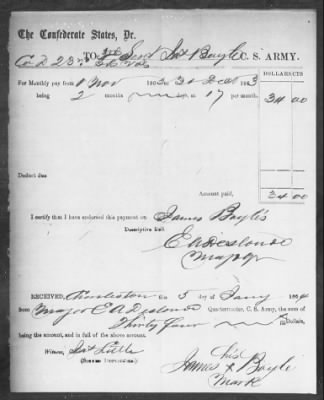 The Confederate States, Dr.
TO 3rd Sergt Jas Boyle C. S. ARMY.
Co D 23
DOLLARS CTS
For Monthly pay from 1 Nov 1863 to 31 Dec 1863
being 2 months days, at 17 per month, 34 00
Deduct due
Amount paid, 34 00
I certify that I have endorsed this payment on James Boyle's
Descriptive List
Major
RECEIVED, Charleston On 5 day of Jany 1864
from Major E A Deslonde Quartermaster, C. S. Army, the sum
of Thirty four Dollars,
being the amount, and in full of the above account.
Witness,
(SIGNED DUPLICATES.)
his
James X Boyle
Mark